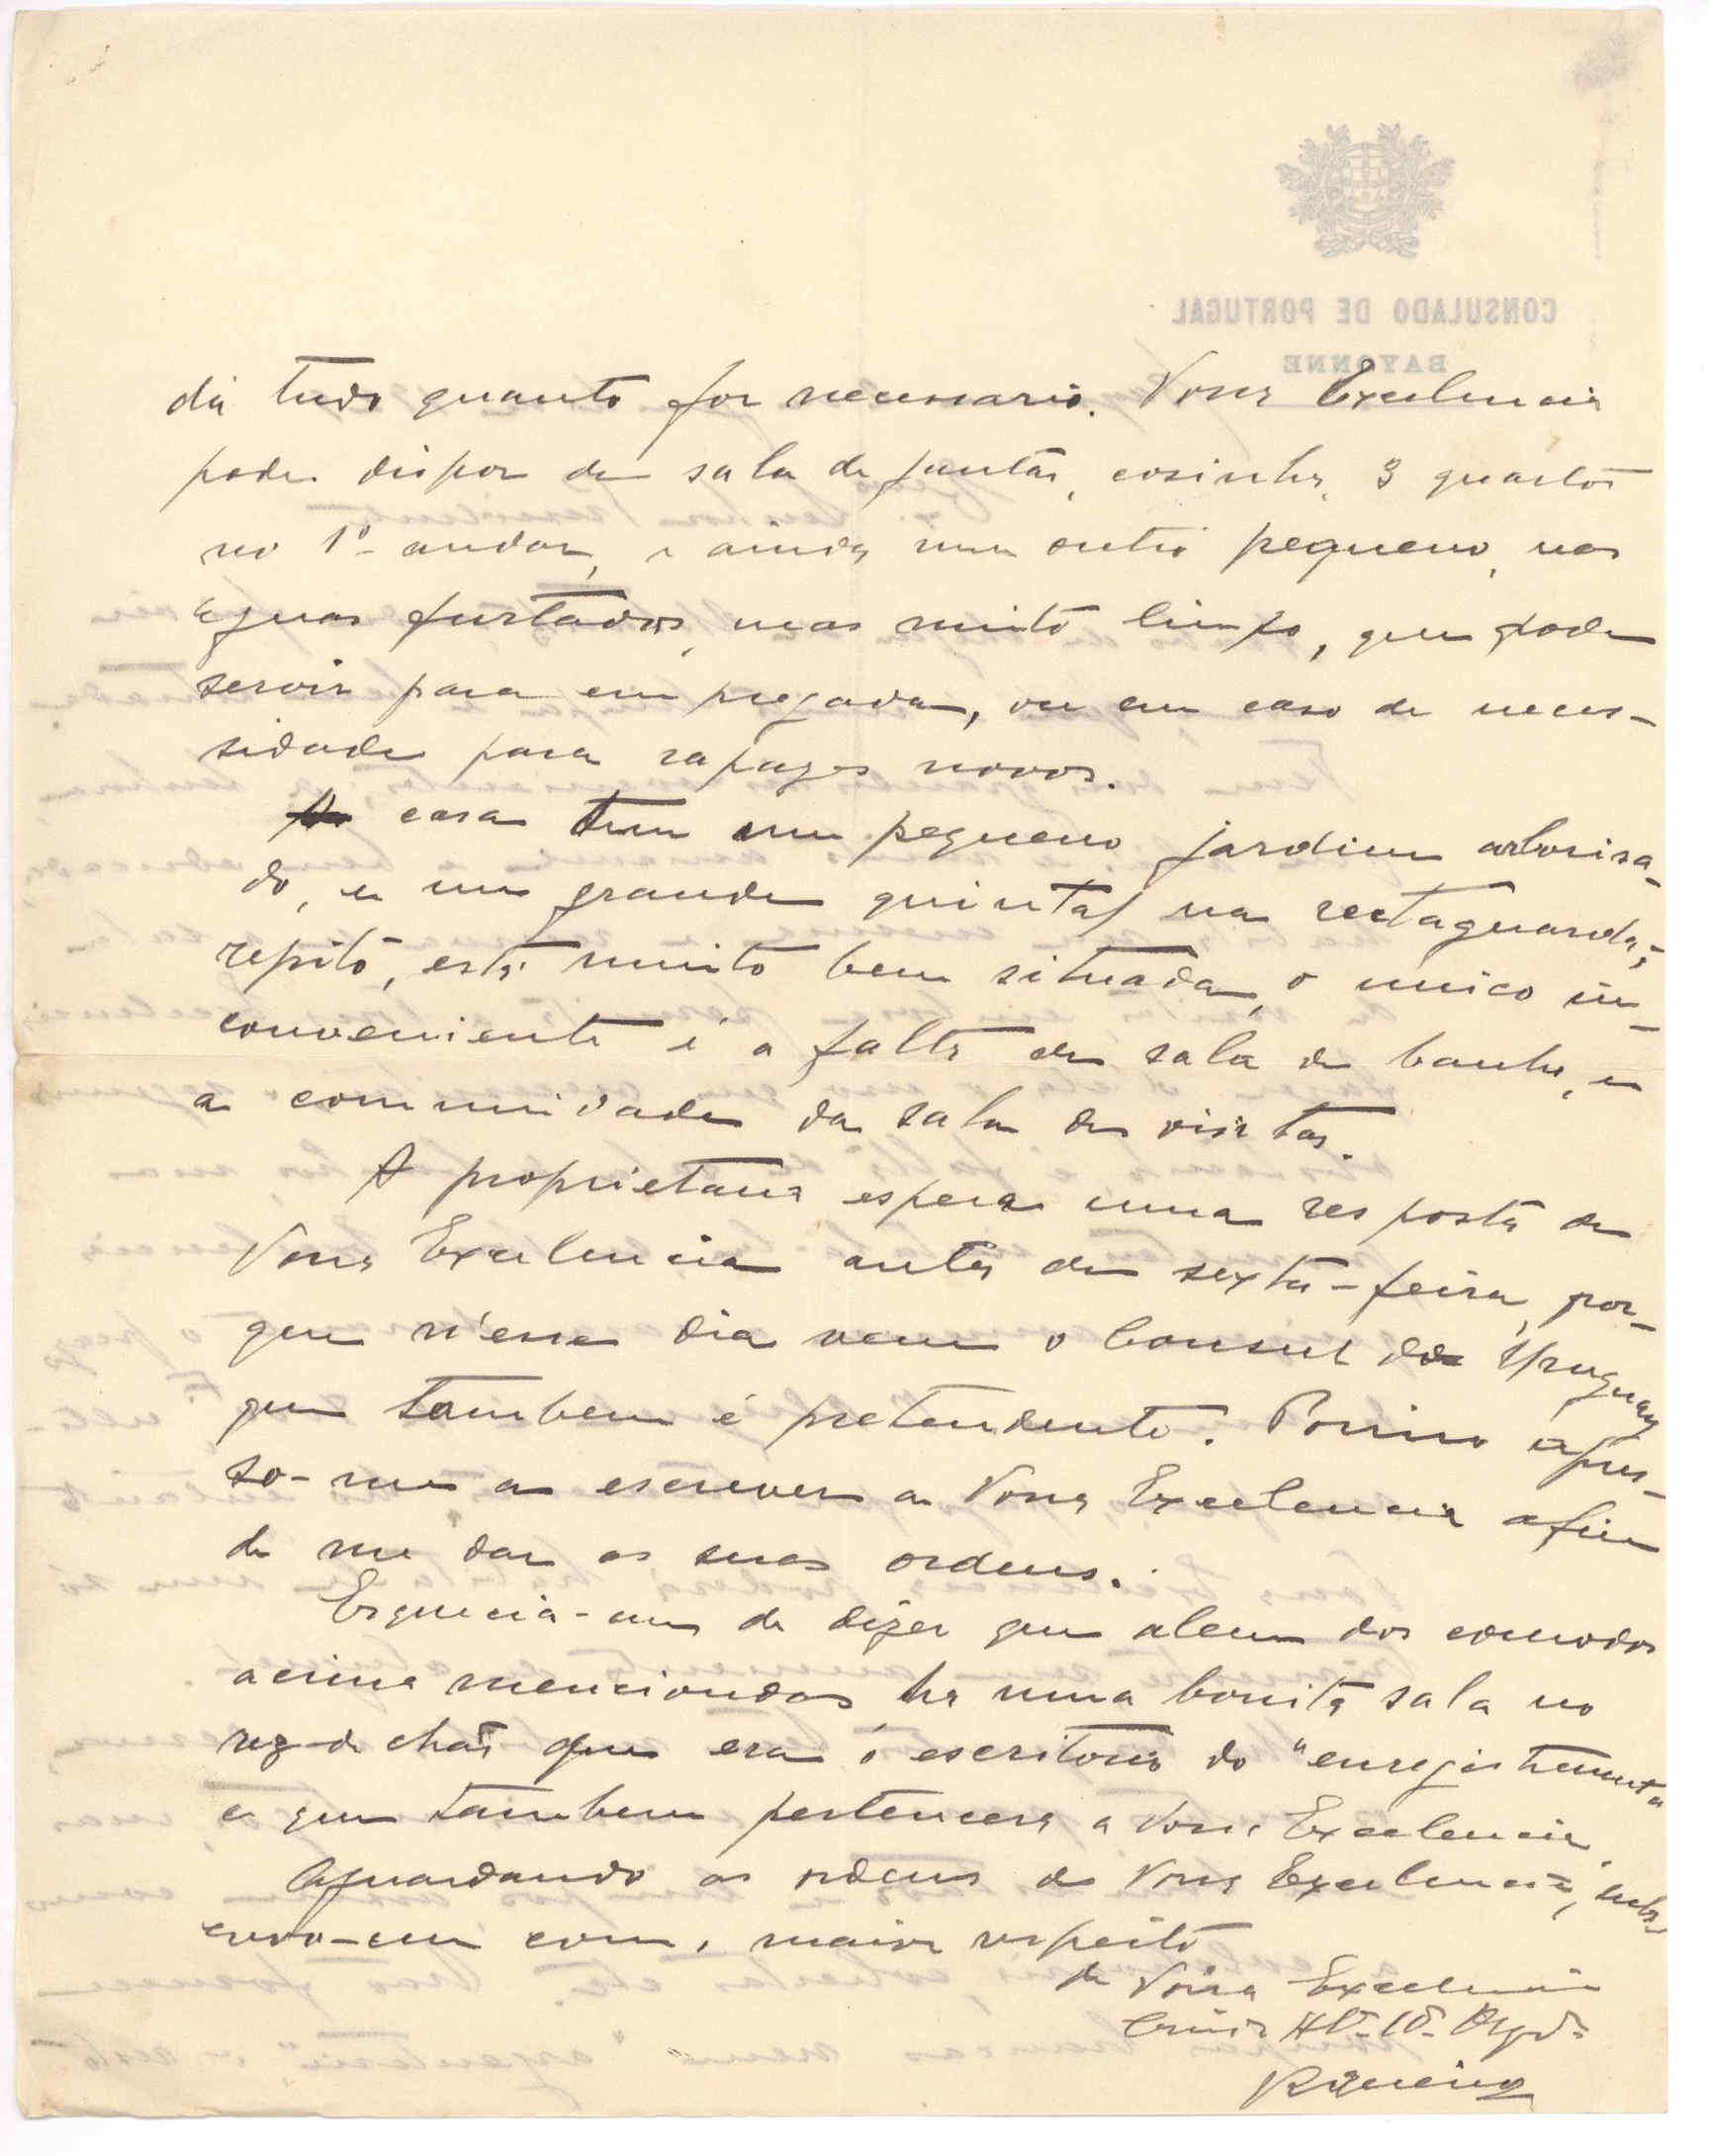 CONSULADO DE PORTUGAL
BAYONNE
dá tudo quanto for necessario. Vossa Excelencia
pode dispor de sala de jantar, cosinha, 3 quartos
no 1º andar, e ainda num outro pequeno, nas
aguas furtadas, mas muito limpo, que pode
servir para empregada, ou em caso de neces-
sidade para rapazes novos.
A casa tem um pequeno jardim arborisa-
do, e um grande quintal na rectaguarda;
repito, está muito bem situada, o unico in-
conveniente é a falta de sala de banho, e
a communidade da sala de visitas.
A proprietaria espera uma resposta de
Vossa Excelencia antes de sexta-feira, por-
que n'esse dia vem o Consul do Uruguay
que tambem é pretendente. Por isso apres-
so-me a escrever a Vossa Excelencia afim
de me dar as suas ordens.
Esquecia-me de dizer que alem dos comodos
acima mencionados ha uma bonita sala no
rez-de chão que era o escritorio do "enregistrement"
e que tambem pertencera a Vossa Excelencia.
Aguardando as ordens de Vossa Excelencia, subs-
crevo-me com, maior respeito
de Vossa Excelencia